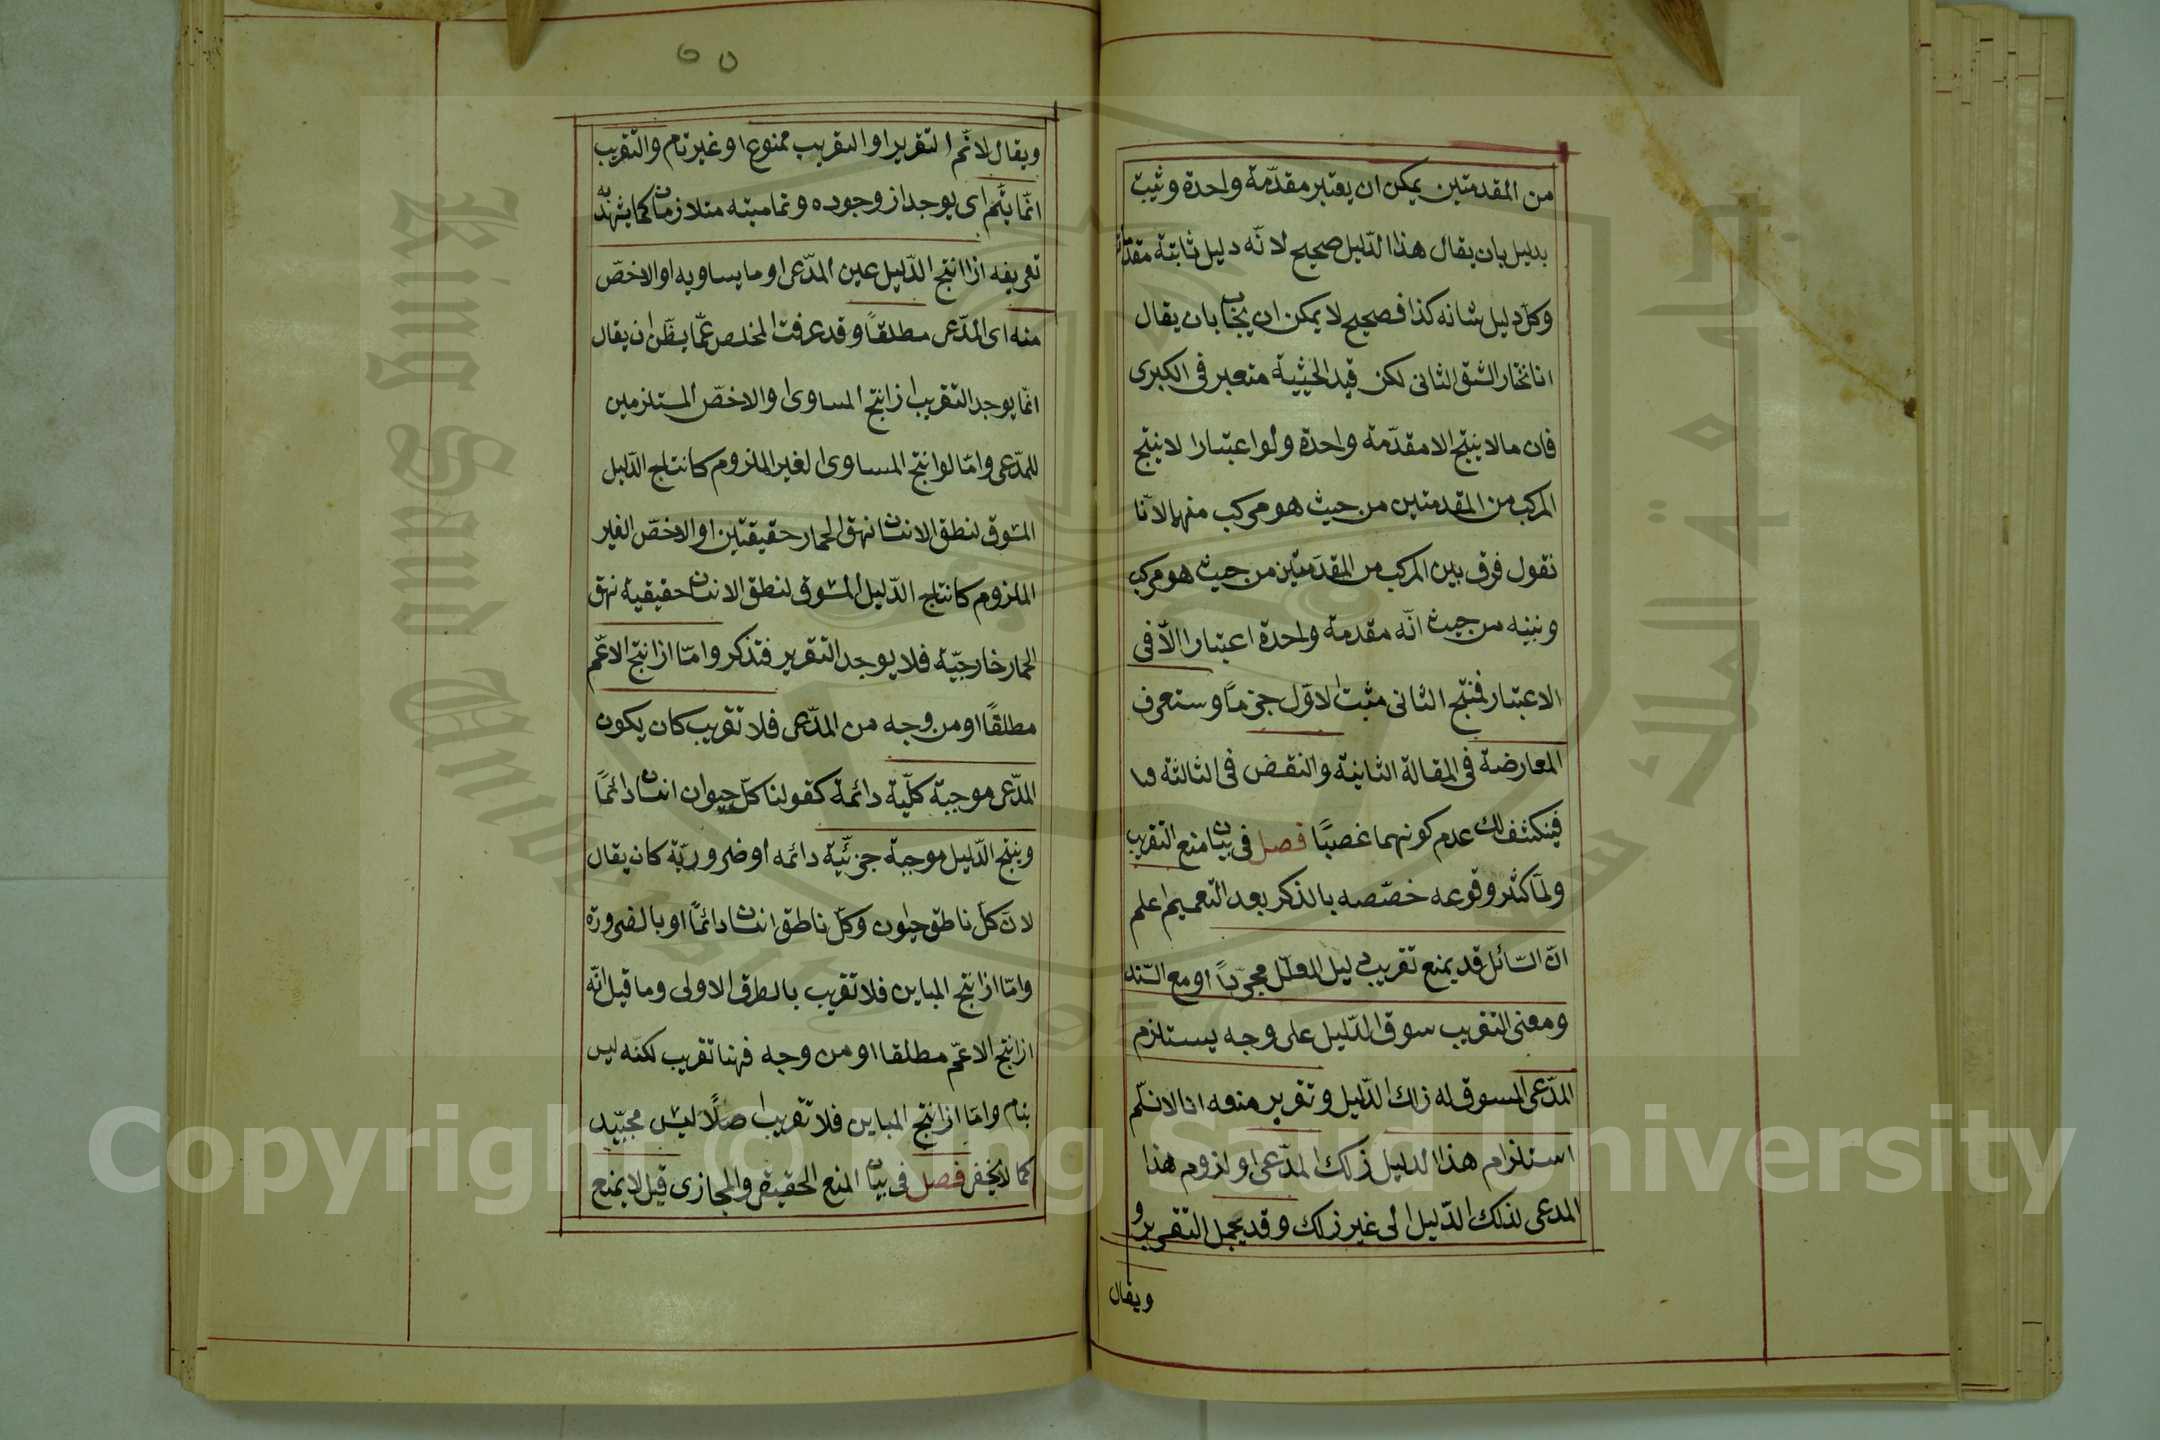 من المقدمتين يمكن ان يعتبر مقدّمة واحدة وثيبت
بدليل بان يقال هذا الدّليل صحيح لانّه دليل ثابتة مقدّماته
وكلّ دليل شانه كذا فصحيح لا يمكن ان يجاب بان يقال
انا نختار الشق الثانى لكن قيد الحيثية متعبر فى الكبرى
فان مالا ينتج الا مقدّمة واحدة ولوا عتبارا لا ينتج
المركب من المقدمتين من حيث هو مركب منهما لانّا
نقول فرق بين المركب من المقدّمتين من حيث هو مركب
وبينه من حيث انّه مقدمة واحدة اعتبارا الّا فى
الاعتبار فمنتج الثانى مثبت الاوّل جزمًا وستعرف
المعارضة فى المقالة الثانية والنقض فى الثالثة
فينكشف لك عدم كونهما غصبًا فصل فى بيان منع التقريب
ولمّا كثر وقوعه خصّصه بالذكر بعد التعميم اعلم
انّ السّائل قد يمنع تقريب دليل المعلّل مجرّدًا او مع السّند
ومعنى التقريب سوق الدّليل على وجه يستلزم
المدّعى المسوق له ذلك الدّليل وتقرير منعه انا لا نسلّم
استلزام هذا الدليل ذلك المدّعى او لزوم هذا
المدعى لذلك الدّليل الى غير ذلك وقد يجمل التقرير و
ويقال
٥٥
ويقال لا نسلّم التقرير او التقريب ممنوع او غير تام والتقريب
انّما يتّم اى يوجد اذ وجوده وتماميته متلازمان كما يشهد به
تعريفه اذا انتج الدّليل عين المدّعى او ما يساويه او الاخصّ
منه اى المدّعى مطلقًا وقد عرفت المخلص عمّا يظنّ ان يقال
انّما يوجد التقريب اذ انتج المساوى والاخصّ المستلزمين
للمدّعى وامّا لو انتج المساوى الغير الملزوم كانتاج الدّليل
المسوق لنطق الانسان نهق الحمار حقيقتين او الاخصّ الغير
الملزوم كانتاج الدّليل المسوق لنطق الانسان حقيقية نهق
الحمار خارجيّة فلا يوجد التقرير فتذكر وامّا اذ انتج الاعّم
مطلقًا او من وجه من المدّعى فلا تقريب كان يكون
المدّعى موجبة كلّية دائمة كقولنا كلّ حيوان انسان دائمًا
وينتج الدّليل موجبة جزئيّة دائمه او ضروريّة كان يقال
لانّ كلّ ناطق حيوان وكلّ ناطق انسان دائمًا او بالضرورة
وامّا اذ انتج المباين فلا تقريب بالطرق الاولى وما قيل انّه
اذ انتج الاعّم مطلقا او من وجه فهنا تقريب لكنّه ليس
بتام وامّا اذ انتج المباين فلا تقريب اصلًا ليس بجيّد
كما لا يخفى فصل فى بيان المنع الحقيقى والمجازى قيل لا يمنع
King Saud University
جامعة الملك سعود
1957
Copyright © King Saud University